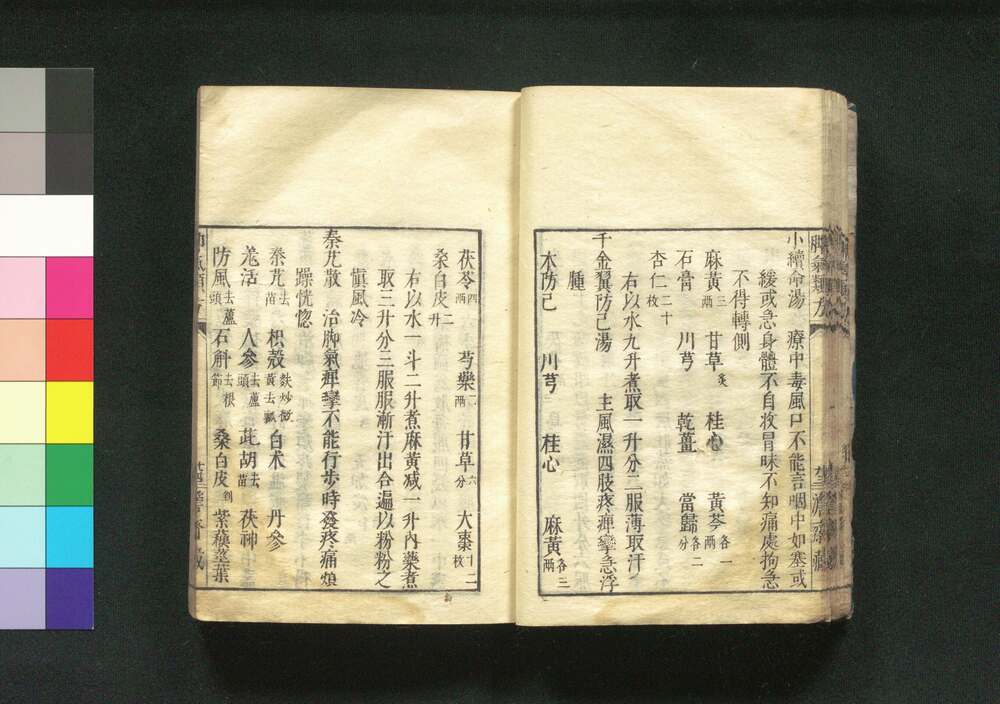 小續命湯　療中毒風口不能言咽中如塞或
緩或急身體不自收冒昧不知痛處拘急
不得轉側
麻黃三兩　甘草炙　桂心　黃芩各一兩
石膏　川芎　乾薑　當歸各二分
杏仁二十枚
右以水九升煮取一升分二服薄取汗
千金翼防己湯　主風濕四肢疼痹攣急浮
腫
木防己　川芎　桂心　麻黃各三兩
茯苓四兩　芍藥二兩　甘草六分　大棗十二枚
桑白皮二升
右以水一斗二升煮麻黃减一升內藥煮
取三升分三服服漸汗出令遍以粉粉之
愼風冷
秦艽散　治脚氣痹攣不能行步時發疼痛煩
躁恍惚
秦艽去苗　枳殼麩炒微黃去瓤　白术　丹參
羌活　人參去蘆頭　茈胡去苗　茯神
防風去蘆頭　石斛去根節　桑白皮剉　紫蘓莖葉
脚氣類方